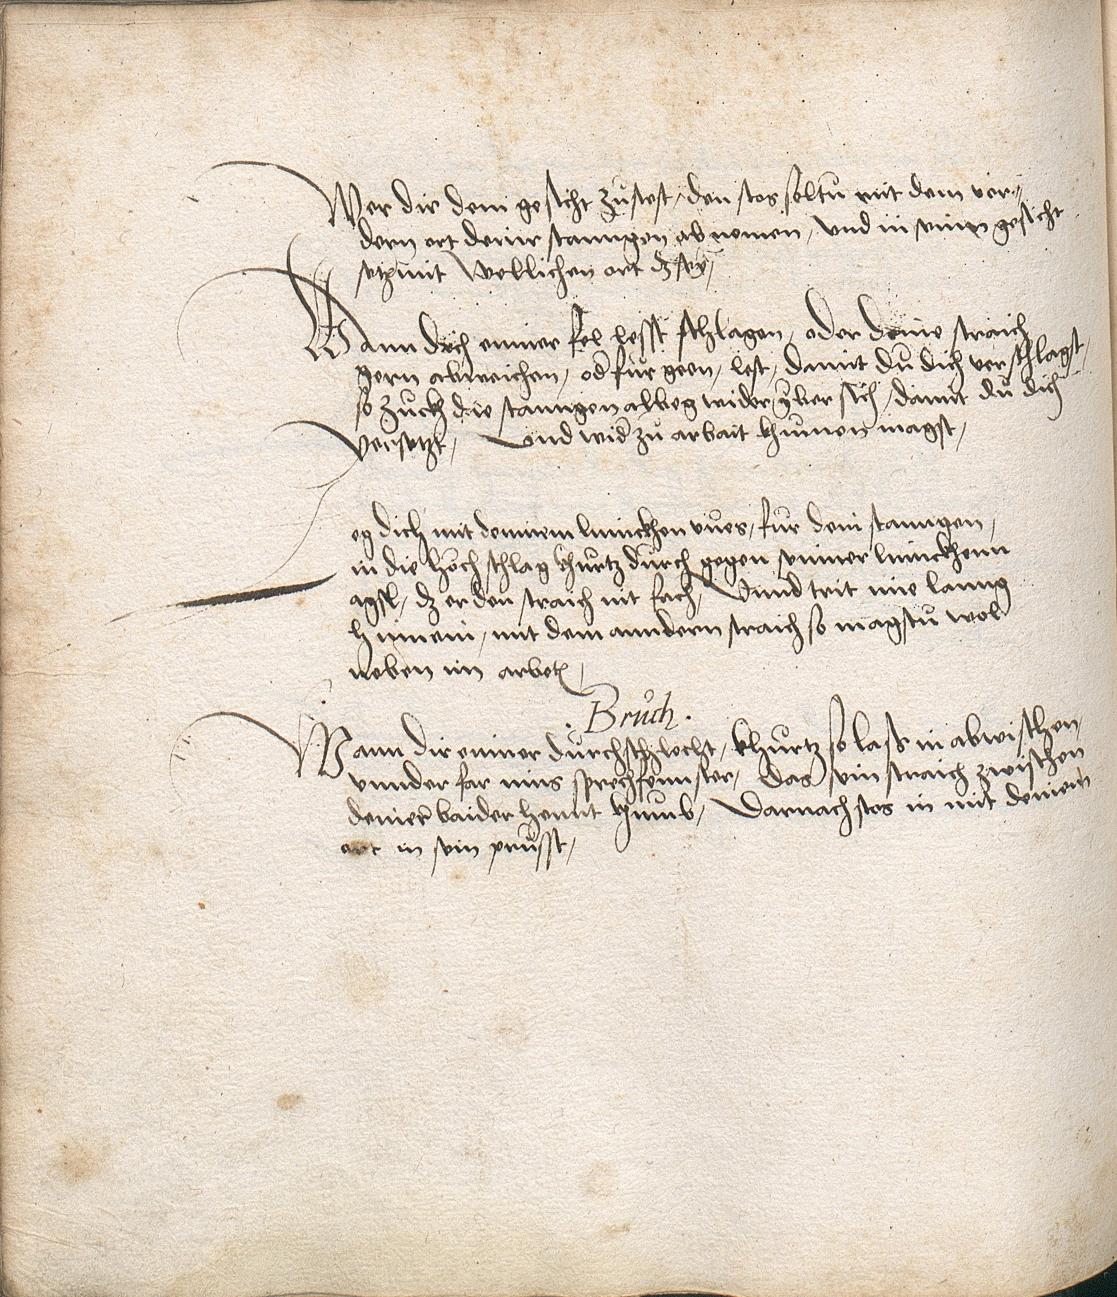 Wer dir dem gesicht zustost, den stos soltu mit dem vor,,
dern ort deiner stanngen ab nemen, und in seinen gesicht
setz mit wellichen ort dz sey,
Wann dich einer fel lesst schlagen, oder deine straich
gern abweichen, oder für geen, lest, damit du dich verschlagst,
so zuckh die stanngen alweg wider yber sich, damit du dich
versetzt, Und wider zu arbait khumen magst,
Leg dich mit deinem linnckhen vues, für dein stanngen,
in die hoch schlag khurtz durch gegen seiner linnckhenn
agsl, dz er den straich nit fach, Unnd trit nie lanng
hinnein, mit dem anndern straich so magstu wol
neben im arbeten,
. Bruch .
Wann dir einer durchschlecht, khurtz so lass in abwischen,
unnder far inns sprechfennster, das sein straich zwischen
deiner baider hennt khumb, Darnach stos in mit deinem
ort in sein prusst,